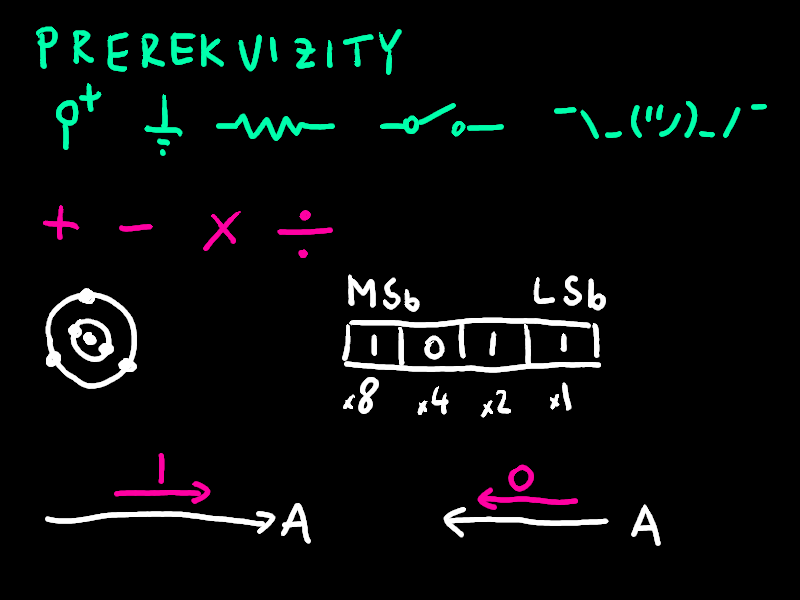 PREREKVIZITY
+
¯\_(ツ)_/¯
+ - × ÷
MSb LSb
1 0 1 1
×8 ×4 ×2 ×1
1 0
A A